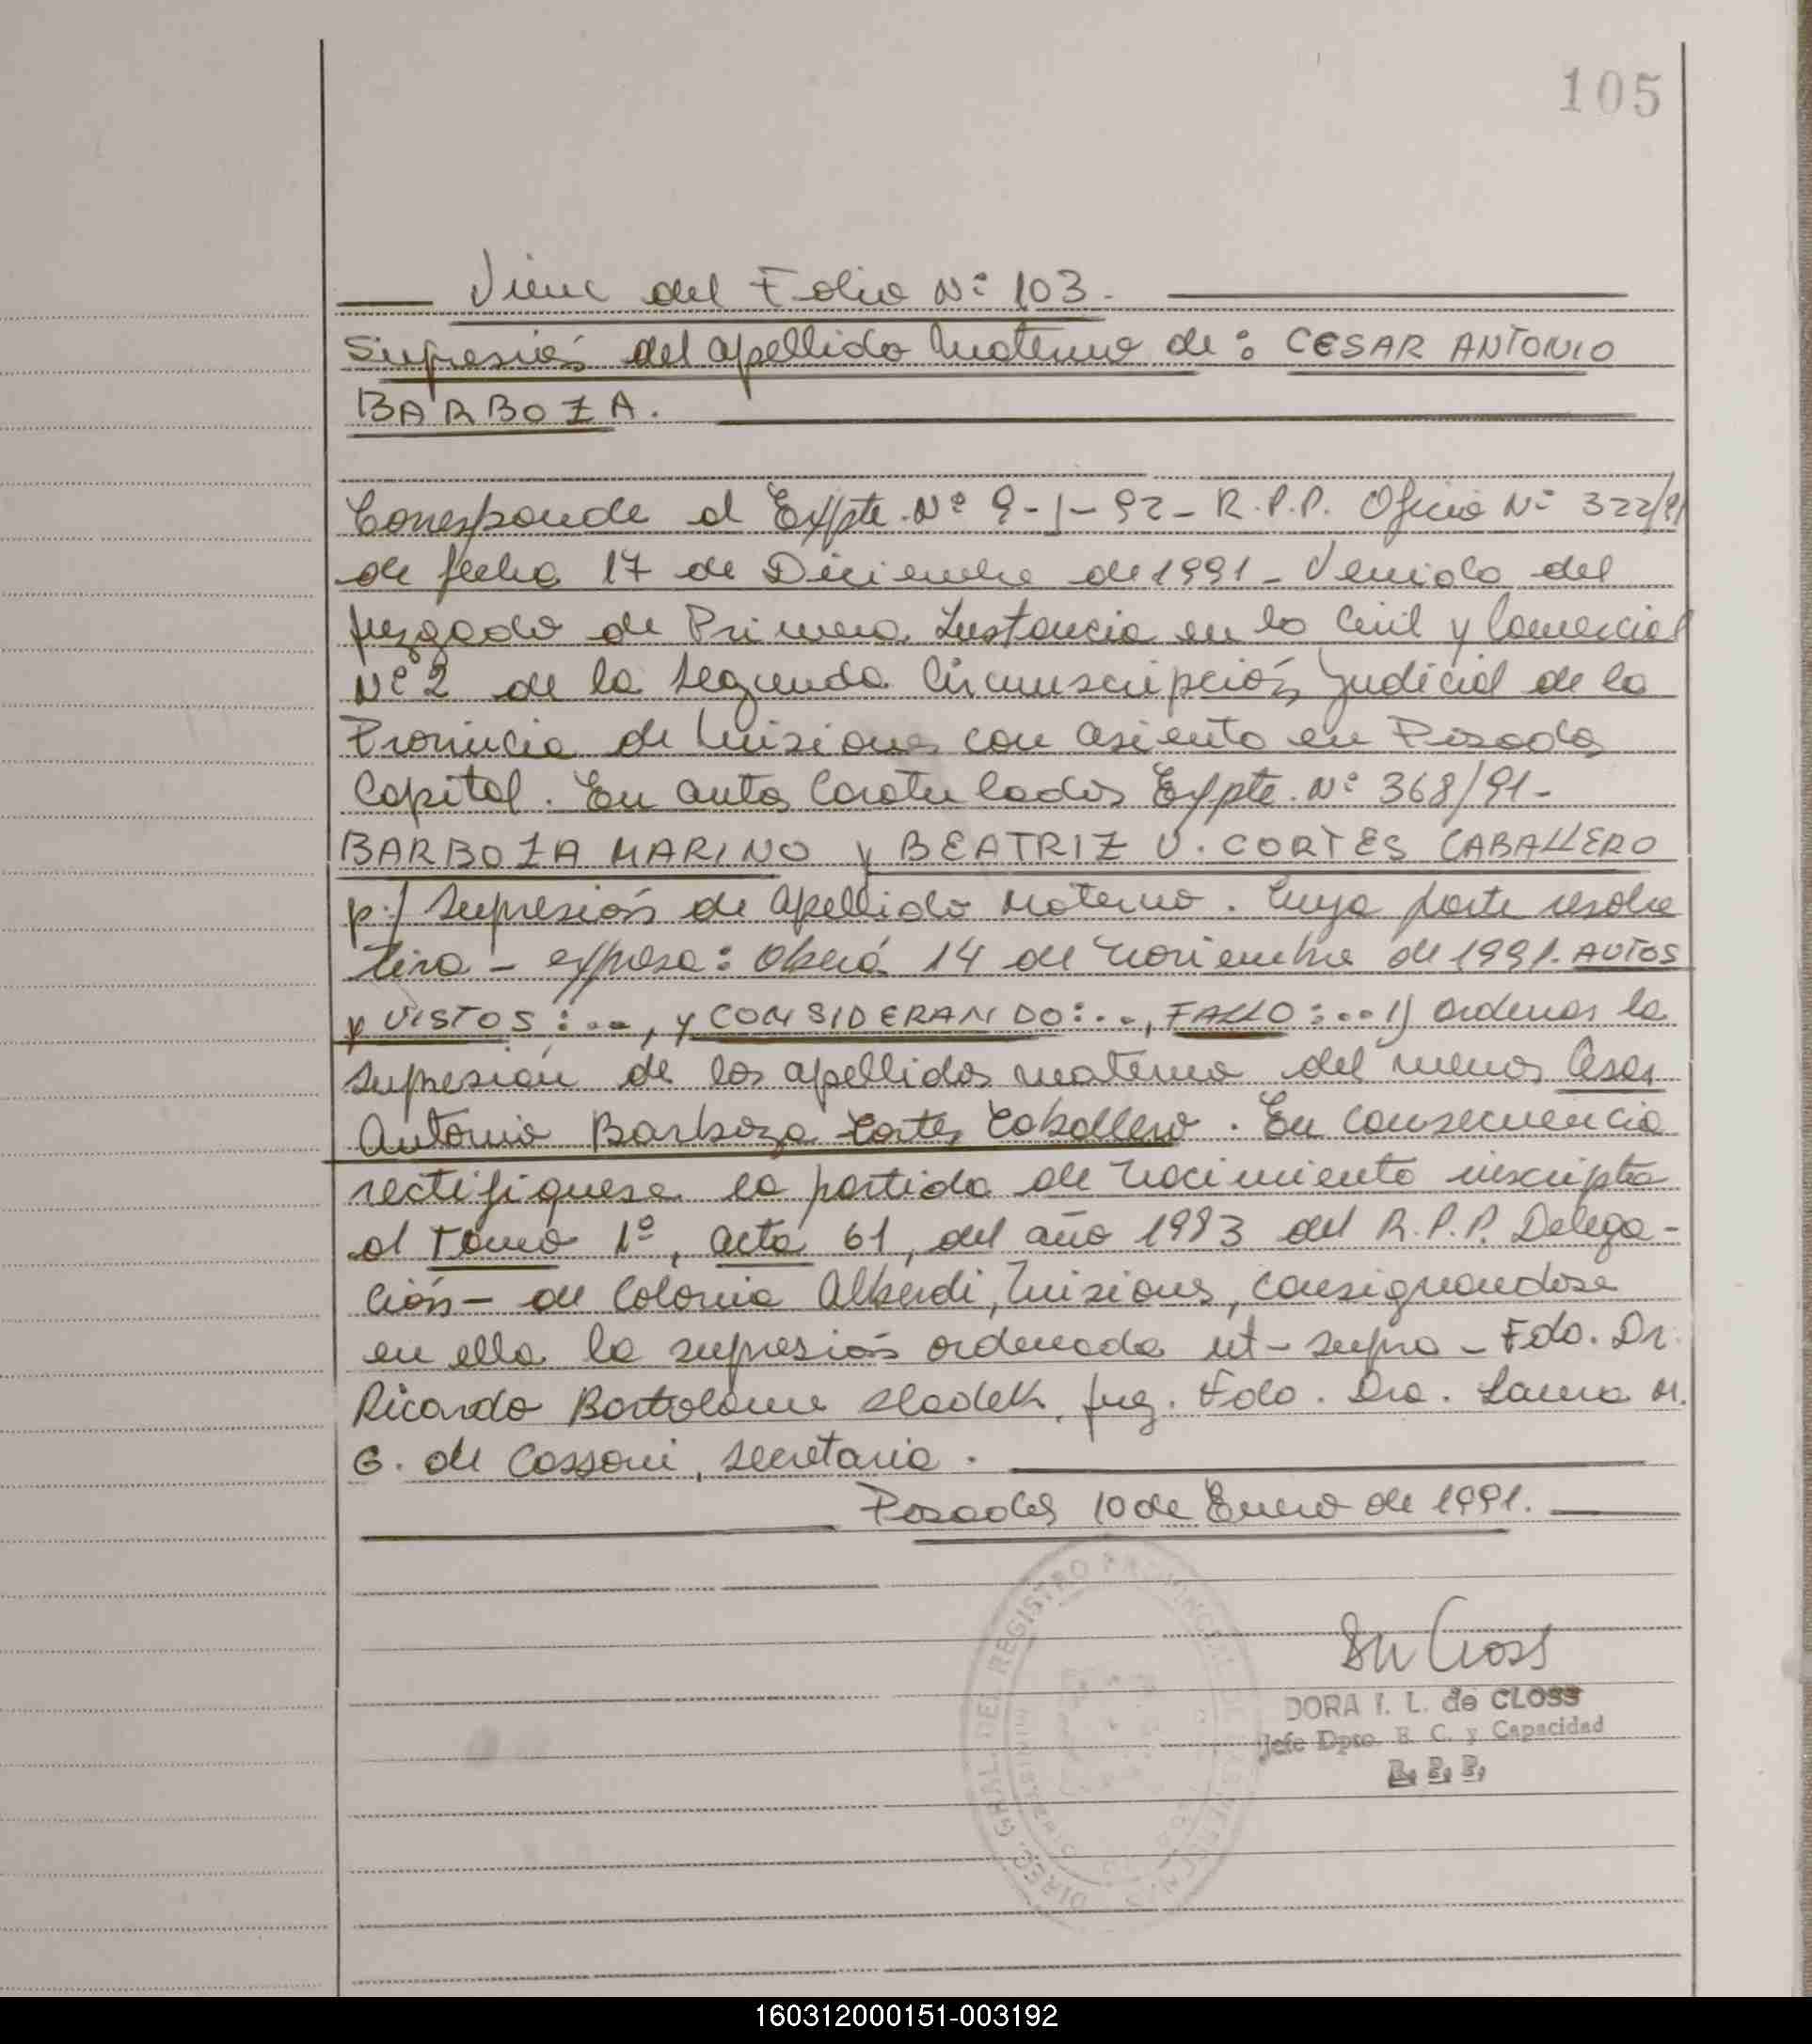 105
Viene del Folio Nº 103.
Supresión del apellido Materno de: CESAR ANTONIO
BARBOZA.
Corresponde al Expte. Nº 9-J-92- R.P.P. Oficio Nº 322/91
de fecha 17 de Diciembre de 1991 - Venido del
Juzgado de Primera Instancia en lo Civil y Comercial
Nº 2 de la Segunda Circunscripción Judicial de la
Provincia de Misiones con asiento en Posadas
Capital. En autos Caratulados Expte. Nº 368/91-
BARBOZA MARINO y BEATRIZ U. CORTES CABALLERO
p:/ Supresión de apellido Materno. Cuya parte resolu
tiva - expresa: Oberá 14 de noviembre de 1991. AUTOS
y VISTOS:..., y CONSIDERANDO:..., FALLO:... 1) ordenar la
supresión de los apellidos materno del menor Cesar
Antonio Barboza Cortes Caballero. En consecuencia
rectifiquese la partida de nacimiento inscripta
al Tomo 1º, acta 61, del año 1983 del R.P.P. Delega-
ción- de Colonia Alberdi, Misiones, consignandose
en ella la supresión ordenada ut-supra - Fdo. Dr.
Ricardo Bartolome Sladek, Juez. Fdo. Dra. Laura M.
G. de Cassoni, Secretaria.
Posadas 10 de Enero de 1991.
DIREC. GRAL. DEL REGISTRO PROVINCIAL DE LAS PERSONAS
DORA I. L. de CLOSS
Jefe Dpto. E. C. y Capacidad
R. P. P.
160312000151-003192